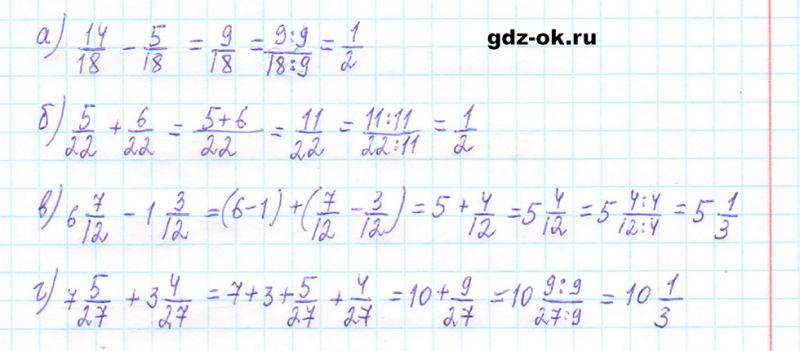 а) 14/18 − 5/18 = 9/18 = 9:9/18:9 = 1/2
gdz-ok.ru
б) 5/22 + 6/22 = 5+6/22 = 11/22 = 11:11/22:11 = 1/2
в) 6 7/12 − 1 3/12 = (6−1) + (7/12 − 3/12) = 5 + 4/12 = 5 4/12 = 5 4:4/12:4 = 5 1/3
г) 7 5/27 + 3 4/27 = 7+3+ 5/27 + 4/27 = 10 + 9/27 = 10 9:9/27:9 = 10 1/3